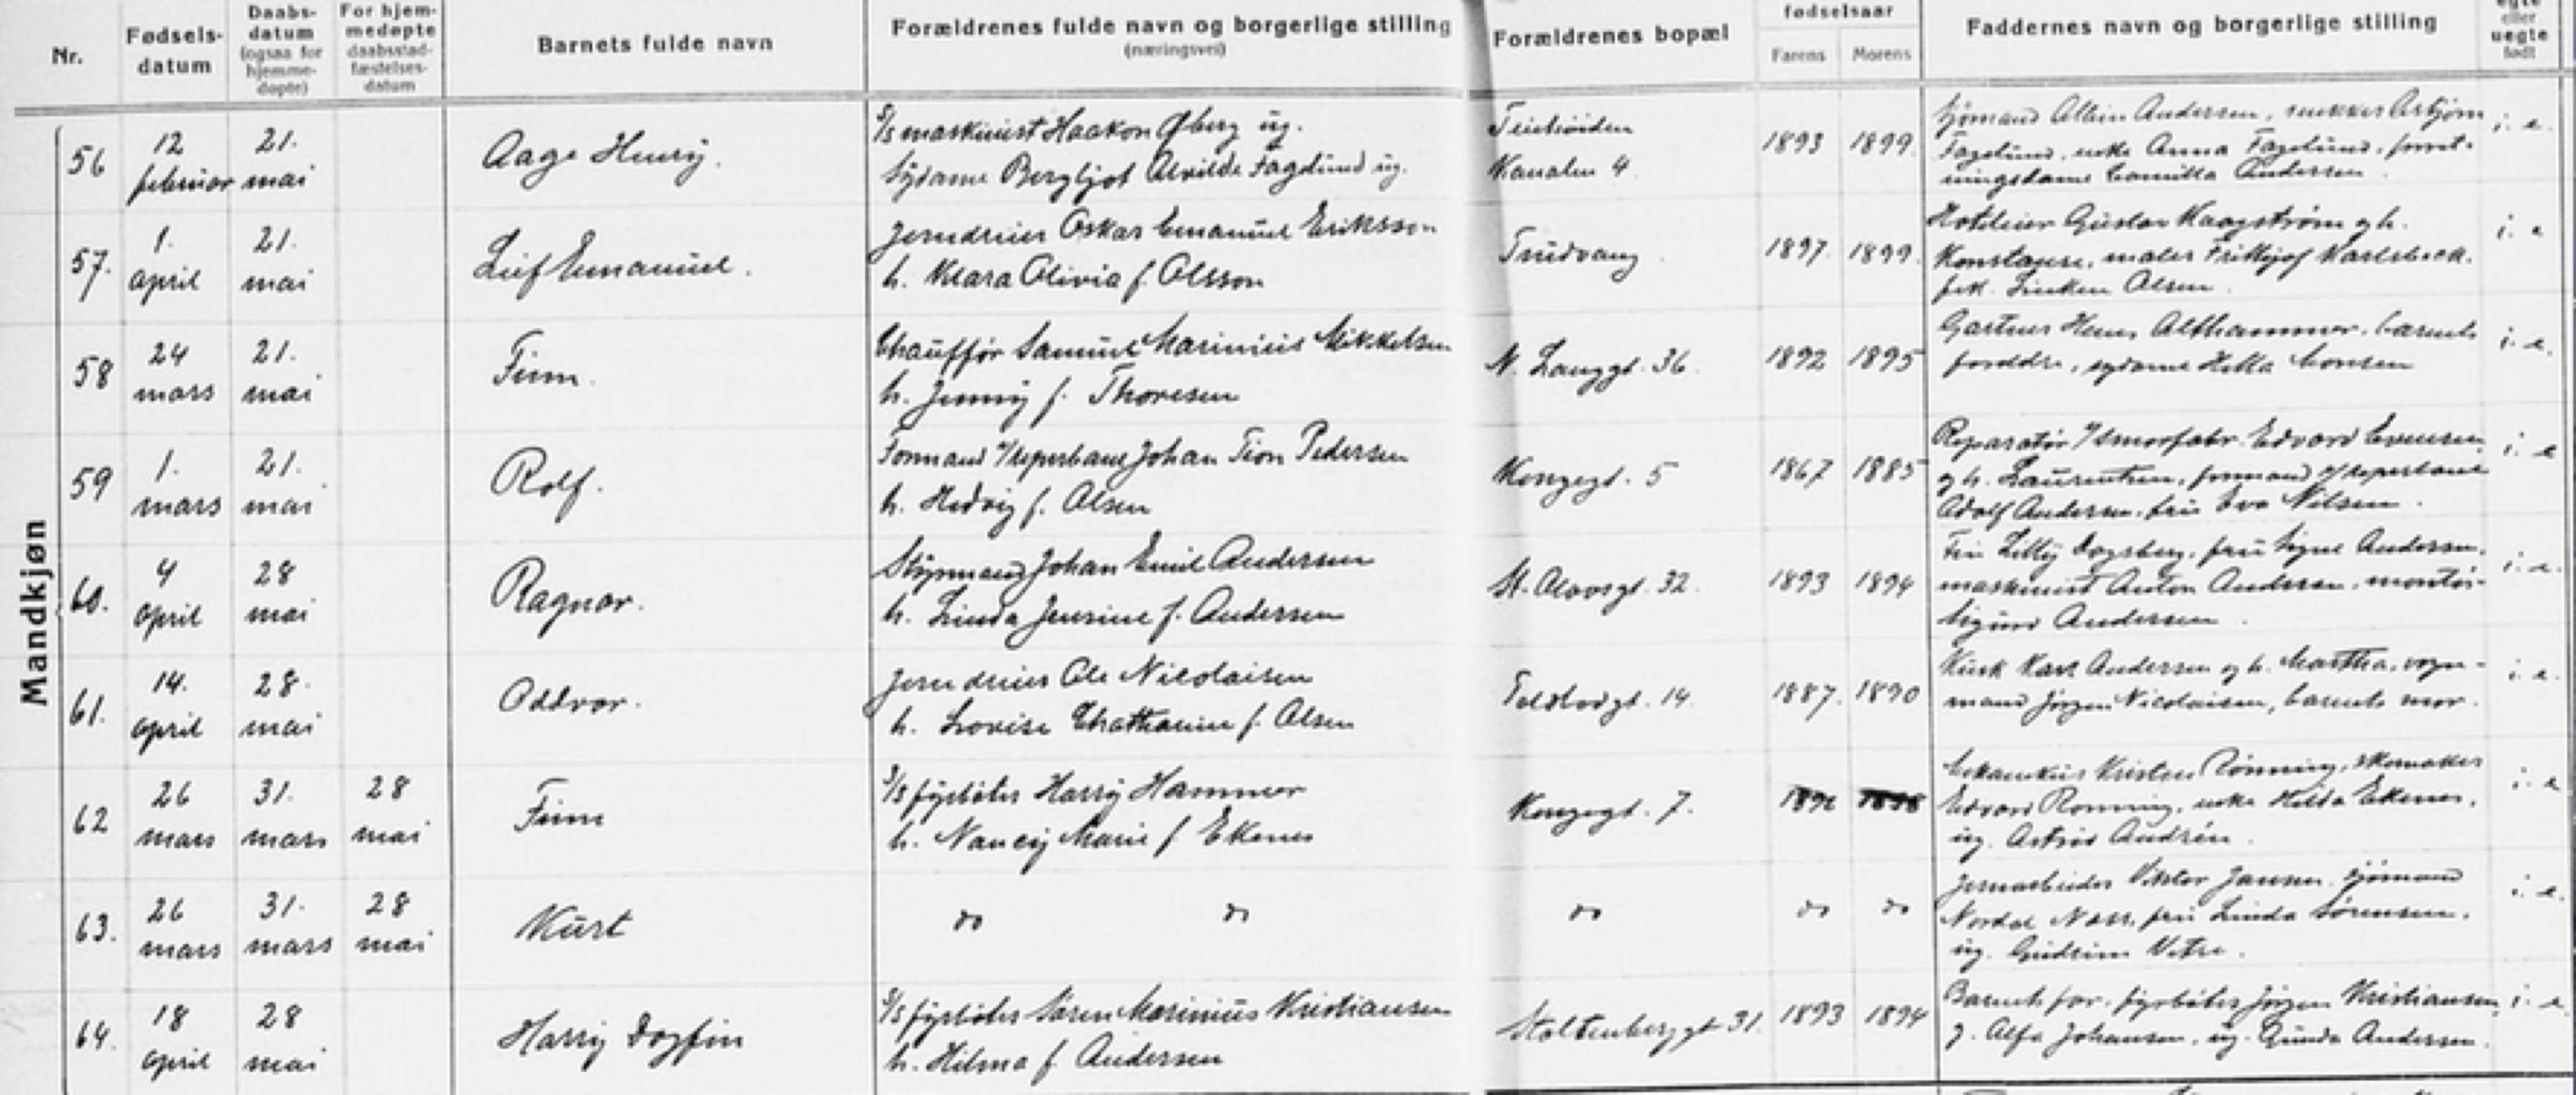 Nr.
Fødsels-
datum
Daabs-
datum
(ogsaa for
hjemme-
døpte)
For hjem-
medøpte
daabsstad-
fæstelses-
datum
Barnets fulde navn
Forældrenes fulde navn og borgerlige stilling
(næringsvei)
Forældrenes bopæl
fødselsaar
Farens Morens
Faddernes navn og borgerlige stilling
egte
eller
uegte
født
Mandkjøn
56
12
februar
21.
mai
Aage Henry.
S/s maskinist Haakon Øberg ug.
Sydame Bergljot Alvilde Fagelund ug.
Kanalen 4
1893 1899
Sjømand Albin Andersen, Asbjørn
Fagelund, enke Anna Fagelund, forret-
ningsdame Camilla Andersen
i. e.
57.
1.
april
21.
mai
Leif Emanuel.
Jerndreier Oskar Emanuel Eriksson
h. Klara Olivia f. Olsson
Trudvang
1897. 1899.
Hoteleier Gustav Haagstrøm og h.
Konstanse, maler Fritthjof Karlsbeck.
frk. Olsen.
i. e
58
24
mars
21.
mai
Finn.
Chauffør Samuel Marinius Mikkelsen
h. Jenny f. Thoresen
N. Langgt. 36.
1892 1895
Gartner Hans Althammer, barnets
forældre, sydame
i. e.
59
1.
mars
21.
mai
Rolf.
Formand v/reperbane Johan Tion Pedersen
h. Hedvig f. Olsen
Kongegt. 5
1867 1885
Reparatør v/smørfabr. Edvard Evensen
og h. Laurentze, formand v/reperbane
Adolf Andersen, fru Eva Nilsen.
i. e
60.
4
april
28
mai
Ragnar.
Styrmand Johan Emil Andersen
h. Linda Jensine f. Andersen
St. Olavsgt. 32.
1893 1894
Fru Lilly Dagsberg, fru Signe Andersen,
maskinist Anton Andersen, montør
Sigurd Andersen.
i. e.
61.
14.
april
28.
mai
Oddvar.
Jerndreier Ole Nicolaisen
h. Lovise Chatharine f. Olsen
14.
1887. 1890
Kusk Karl Andersen og h. Martha, vogn-
mand Jørgen Nicolaisen, barnets mor.
i. e.
62
26
mars
31.
mars
28
mai
Finn
S/s fyrbøter Harry Hammer
h. Nancy Marie f Ekenes
Kongegt. 7.
Kristen Rønning, skomaker
Edvard Rønning, enke Hilda Ekenes,
ug. Astrid Andrén.
i. e
63.
26
mars
31.
mars
28
mai
Kurt
do do
do
do do
Jernarbeider Viktor Jansen, sjømand
Nordal Næss, fru Linda Sørensen,
ug. Gudrun Vetre.
i. e.
64.
18
april
28
mai
Harry Dagfin
S/s fyrbøter Søren Marinius Kristiansen
h. Hilma f. Andersen
Stoltenberggt 31.
1893 1894
Barnets far, fyrbøter Jørgen Kristiansen,
g. Alfa Johansen, ug. Gunda Andersen.
i. e.